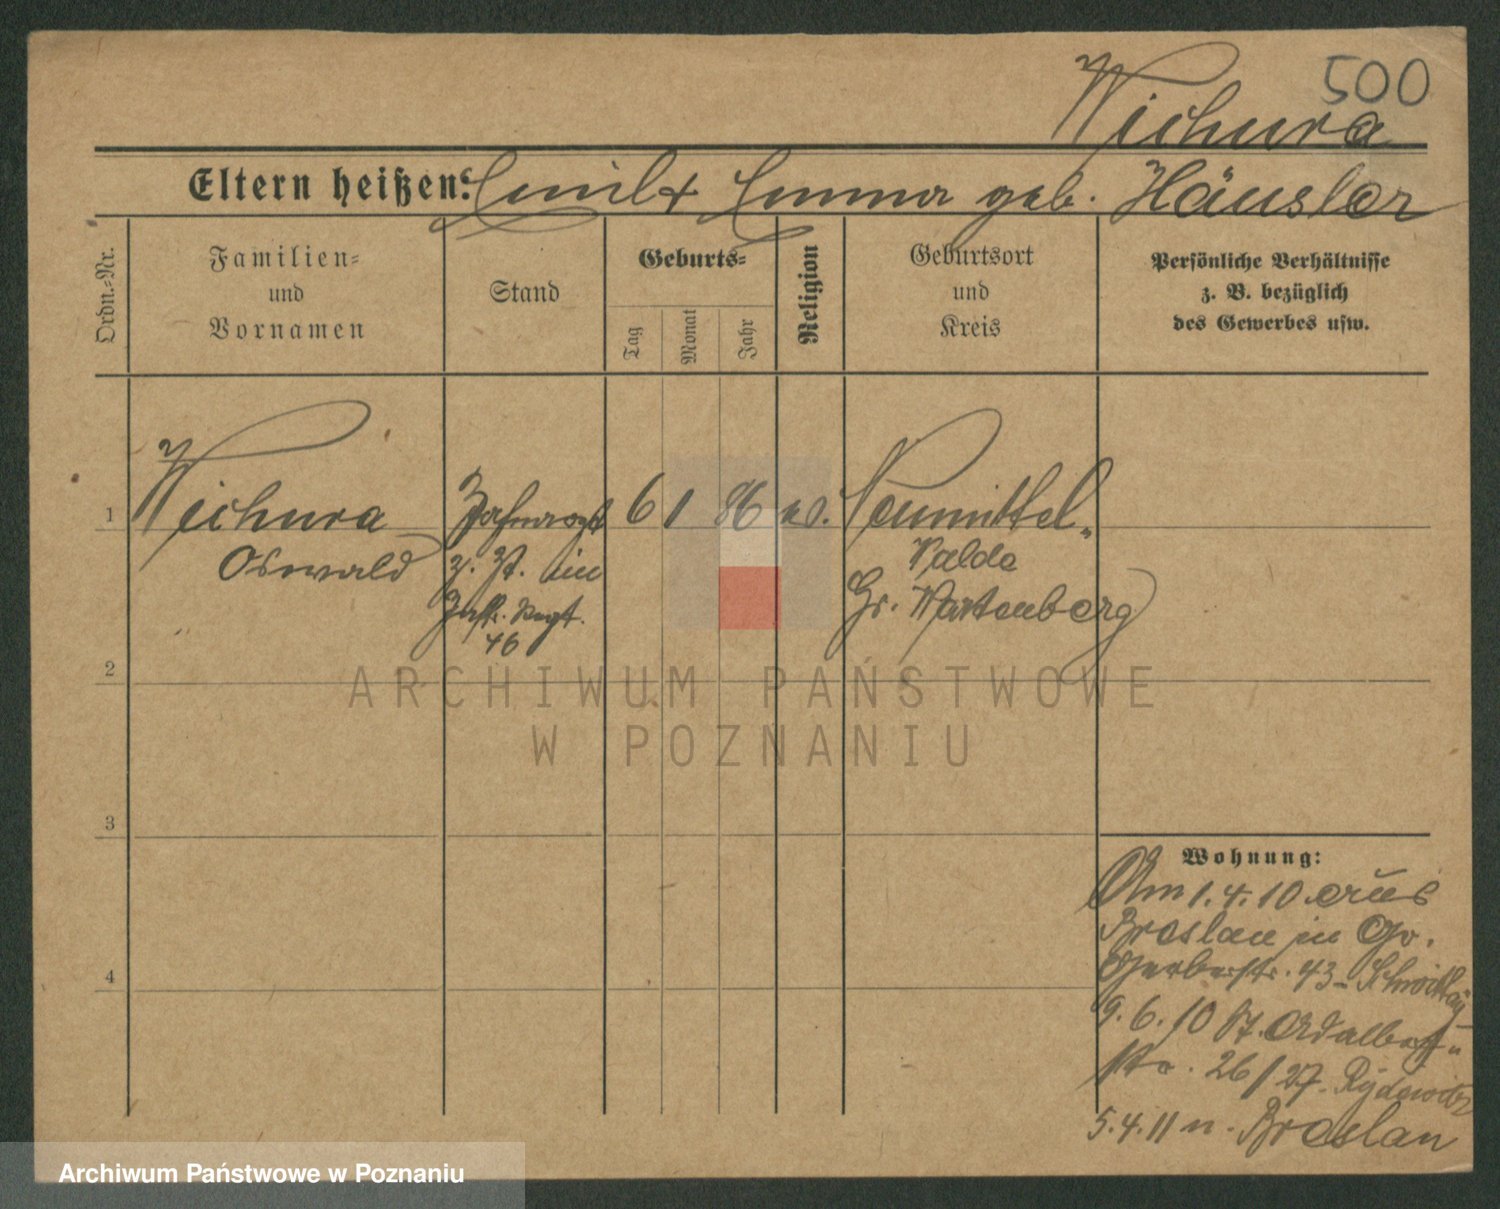 500
Wichura
Eltern heißen: Emil + Emma geb. Häusler
Ordn.-Nr.
Familien-
und
Vornamen
Stand
Geburts-
Tag
Monat
Jahr
Religion
Geburtsort
und
Kreis
Persönliche Verhältnisse
z. B. bezüglich
des Gewerbes usw.
1
Wichura
Oswald
Zahnarzt
z. Zt. im
Inft. Regt.
46
6
1
86
ev.
Neumittel-
walde
Gr. Wartenberg
2
3
4
Wohnung:
Am 1.4.10 aus
Breslau in Gr.
Gerberstr. 43
9.6.10 St. Adalbert-
str. 26/27.
5.4.11 n. Breslau
ARCHIWUM PAŃSTWOWE
W POZNANIU
Archiwum Państwowe w Poznaniu